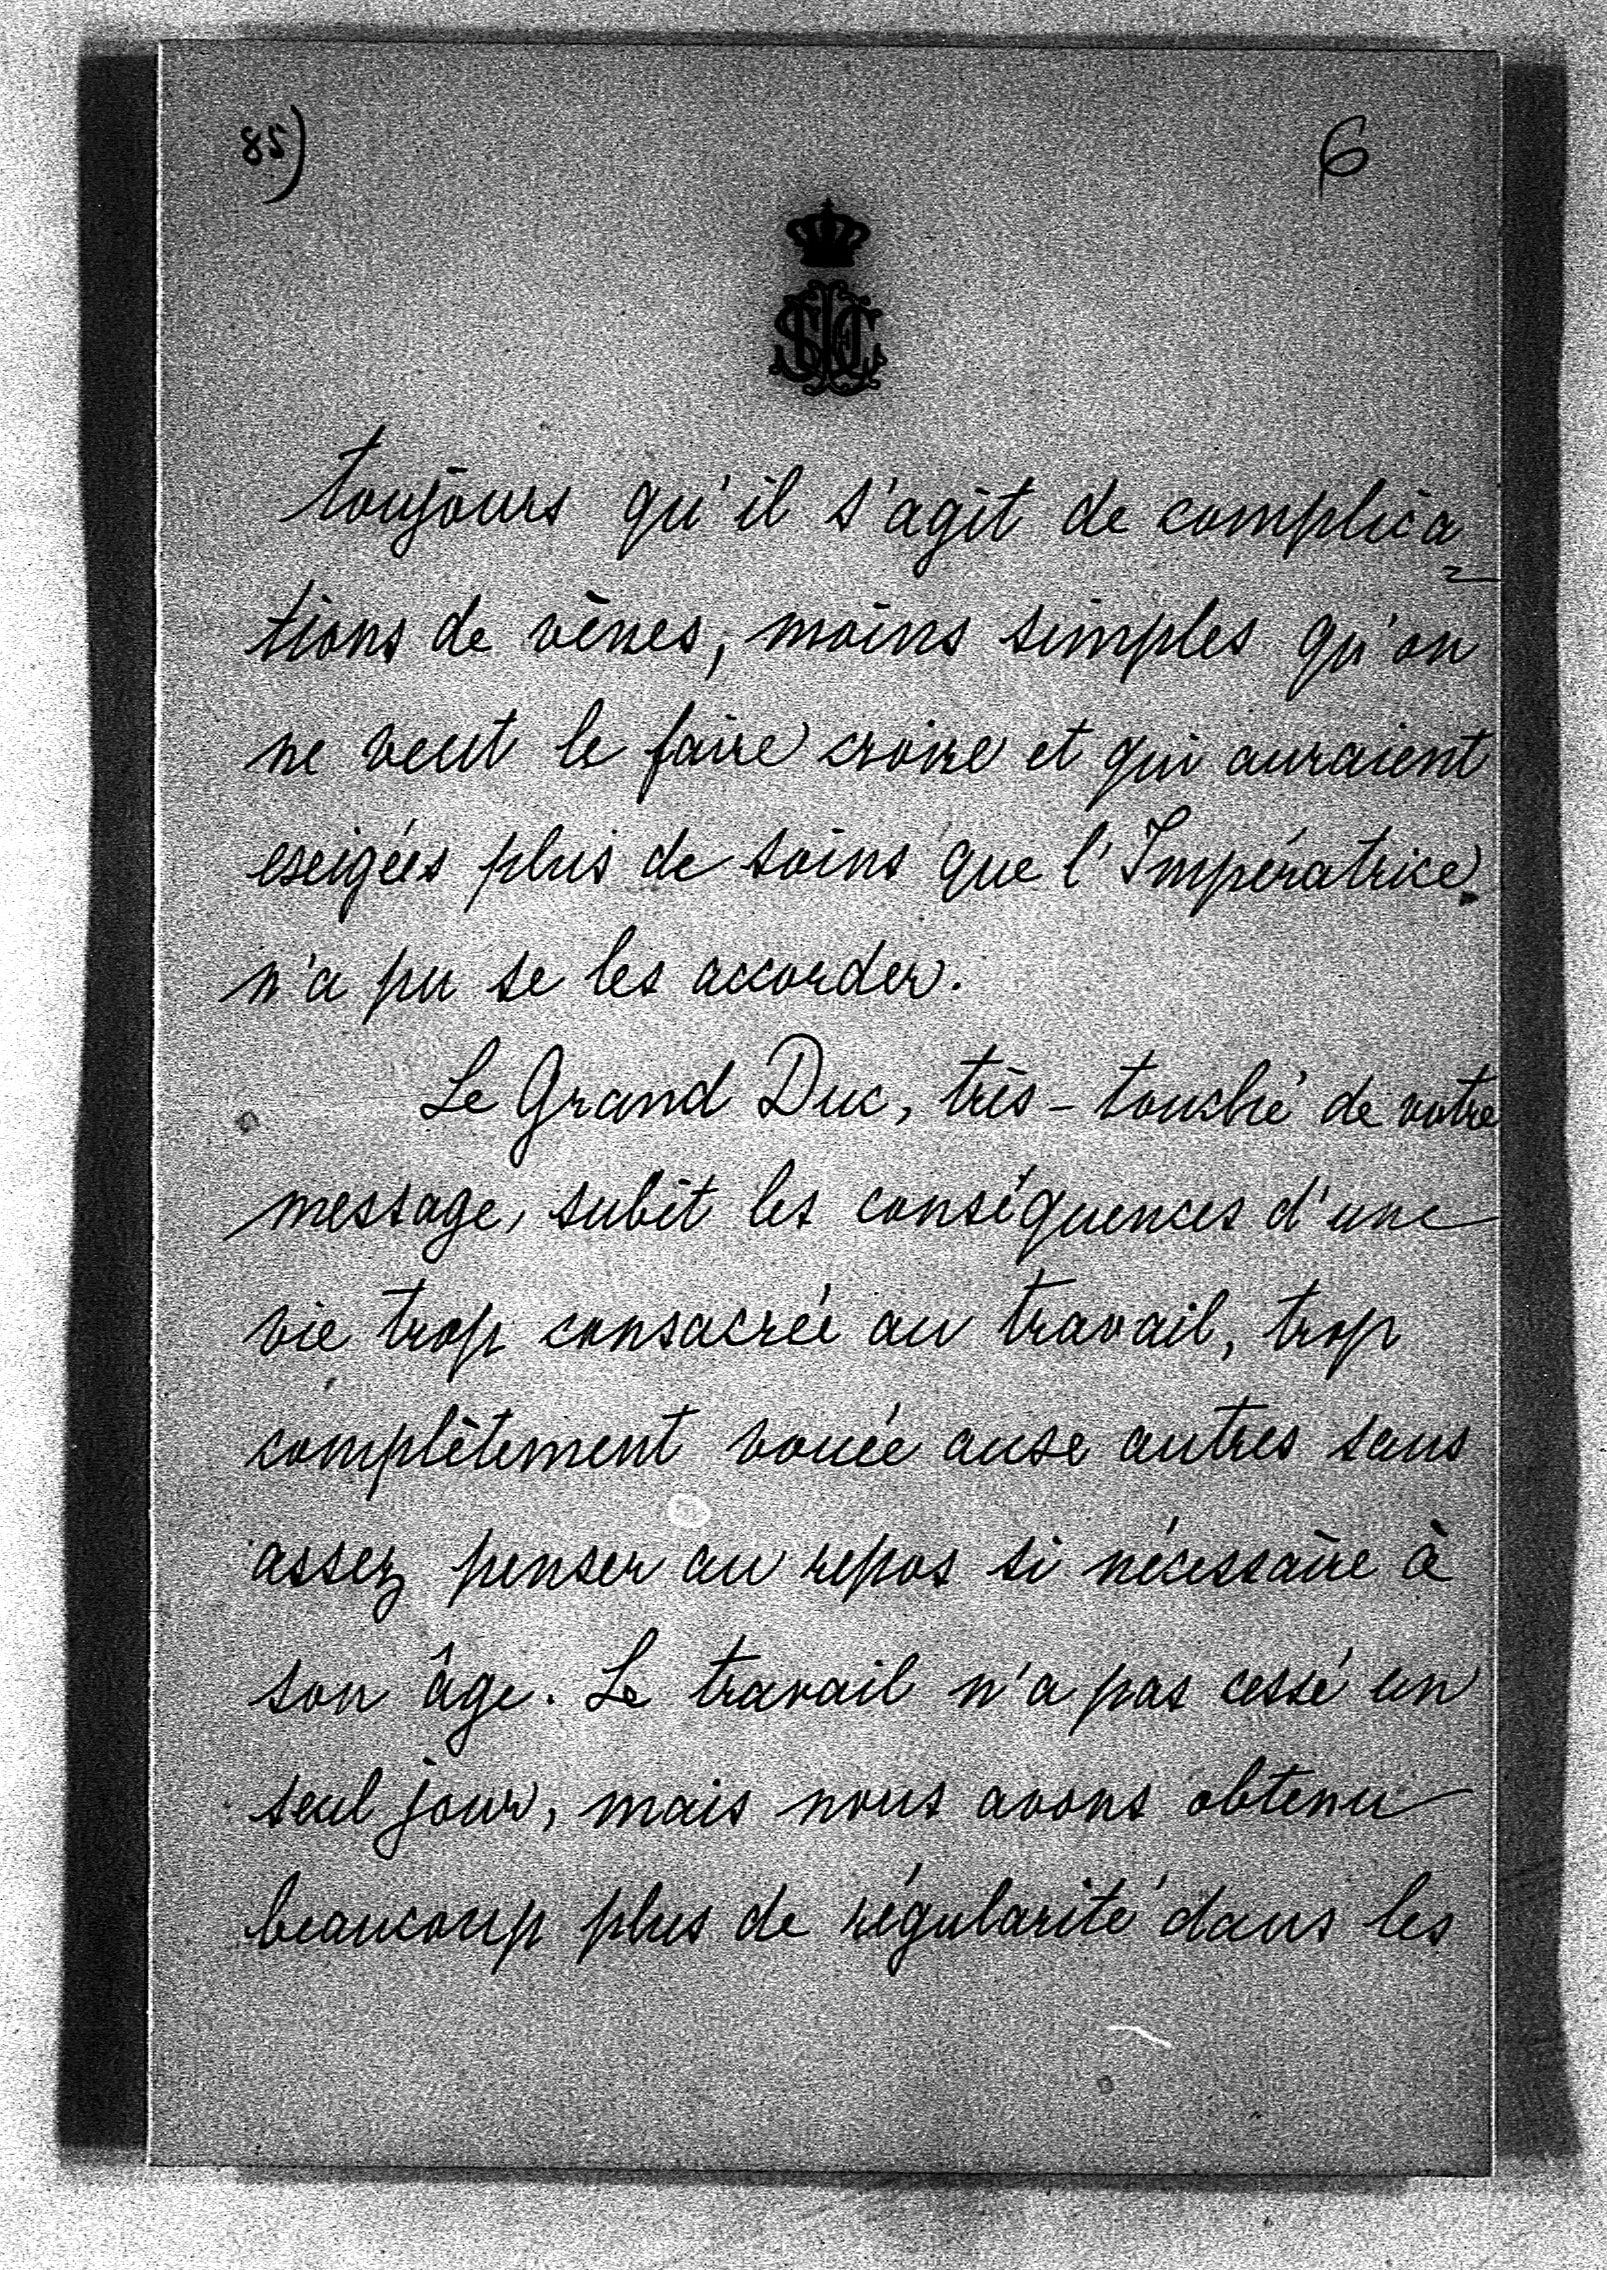 85) 6
toujours qu'il s'agit de complica
tions de vènes, moins simples qu'on
ne veut le faire croire et qui auraient
exigées plus de soins que l'Impératrice
n'a pu se les accorder.
Le Grand Duc, très-touché de votre
message, subit les conséquences d'une
vie trop consacrée au travail, trop
complètement vouée aux autres sans
assez penser au repos si nécessaire à
son âge. Le travail n'a pas cessé un
seul jour, mais nous avons obtenu
beaucoup plus de régularité dans les